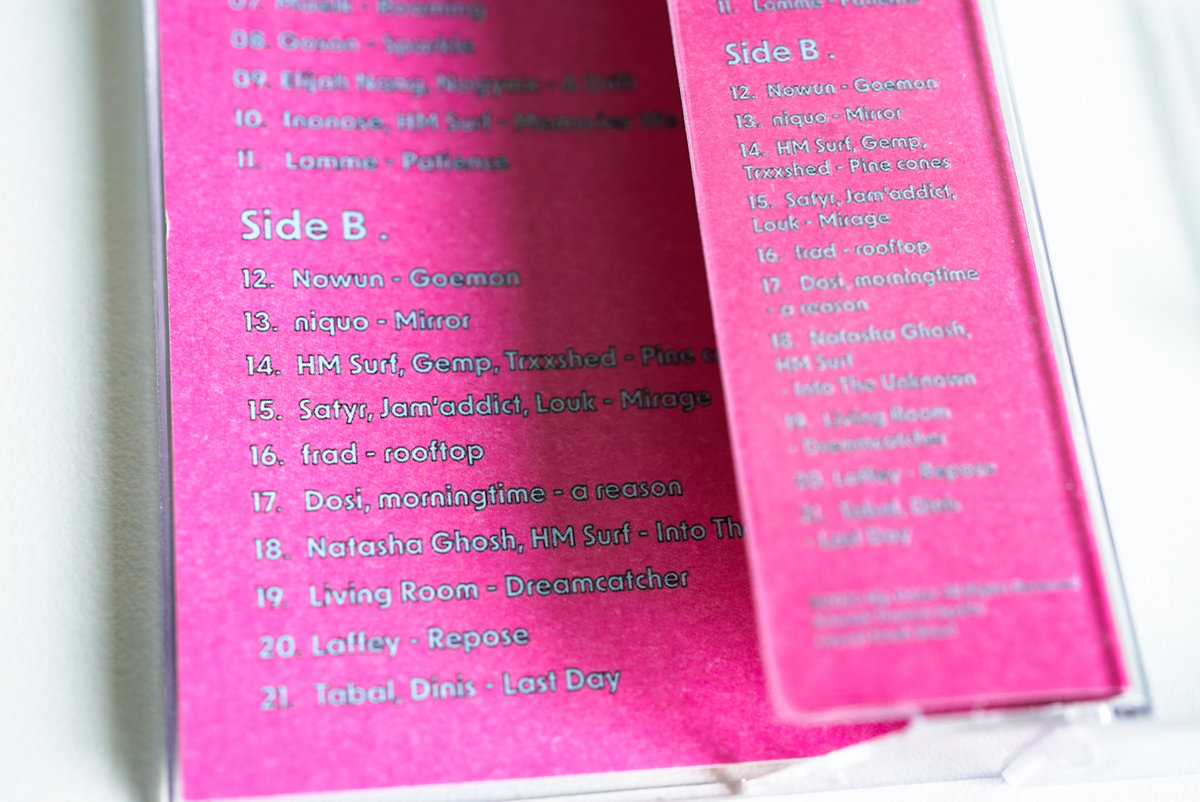 08. Gowon - Sparkle
09. Elijah Nang, Nogymx - A Drift
10. Inanose, HM Surf - Memories We
11. Lomme - Patience
Side B .
12. Nowun - Goemon
13. niquo - Mirror
14. HM Surf, Gemp, Trxxshed - Pine c
15. Satyr, Jam'addict, Louk - Mirage
16. frad - rooftop
17. Dosi, morningtime - a reason
18. Natasha Ghosh, HM Surf - Into The
19. Living Room - Dreamcatcher
20. Laffey - Repose
21. Tabal, Dinis - Last Day
11. Lomme - Patience
Side B .
12. Nowun - Goemon
13. niquo - Mirror
14. HM Surf, Gemp,
Trxxshed - Pine cones
15. Satyr, Jam'addict,
Louk - Mirage
16. frad - rooftop
17. Dosi, morningtime
- a reason
18. Natasha Ghosh,
HM Surf
- Into The Unknown
19. Living Room
- Dreamcatcher
20. Laffey - Repose
21. Tabal, Dinis
- Last Day